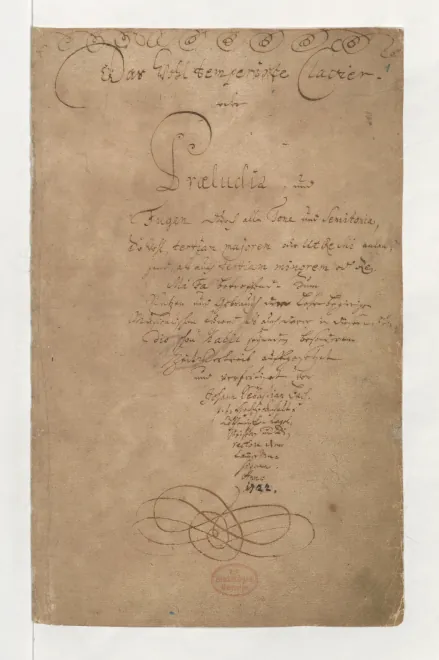 Das Wohl temperirte Clavier.
oder
Præludia, und
Fugen durch alle Tone und Semitonia,
So wohl tertiam majorem oder Ut Re Mi anlan-
gend, als auch tertiam minorem oder Re
Mi Fa betreffend. Zum
Nutzen und Gebrauch der Lehrbegierigen
Musicalischen Jugend, als auch derer in diesem stu-
dio schon habil seyenden besonderem
Zeitvertreib auffgesetzet
und verfertiget von
Johann Sebastian Bach.
p. t. Hochfürstlich
Anhalt-
Cöthenischen Capel-
Meistern und Di-
rectore derer
Cammer
Musiquen.
Anno
1722.